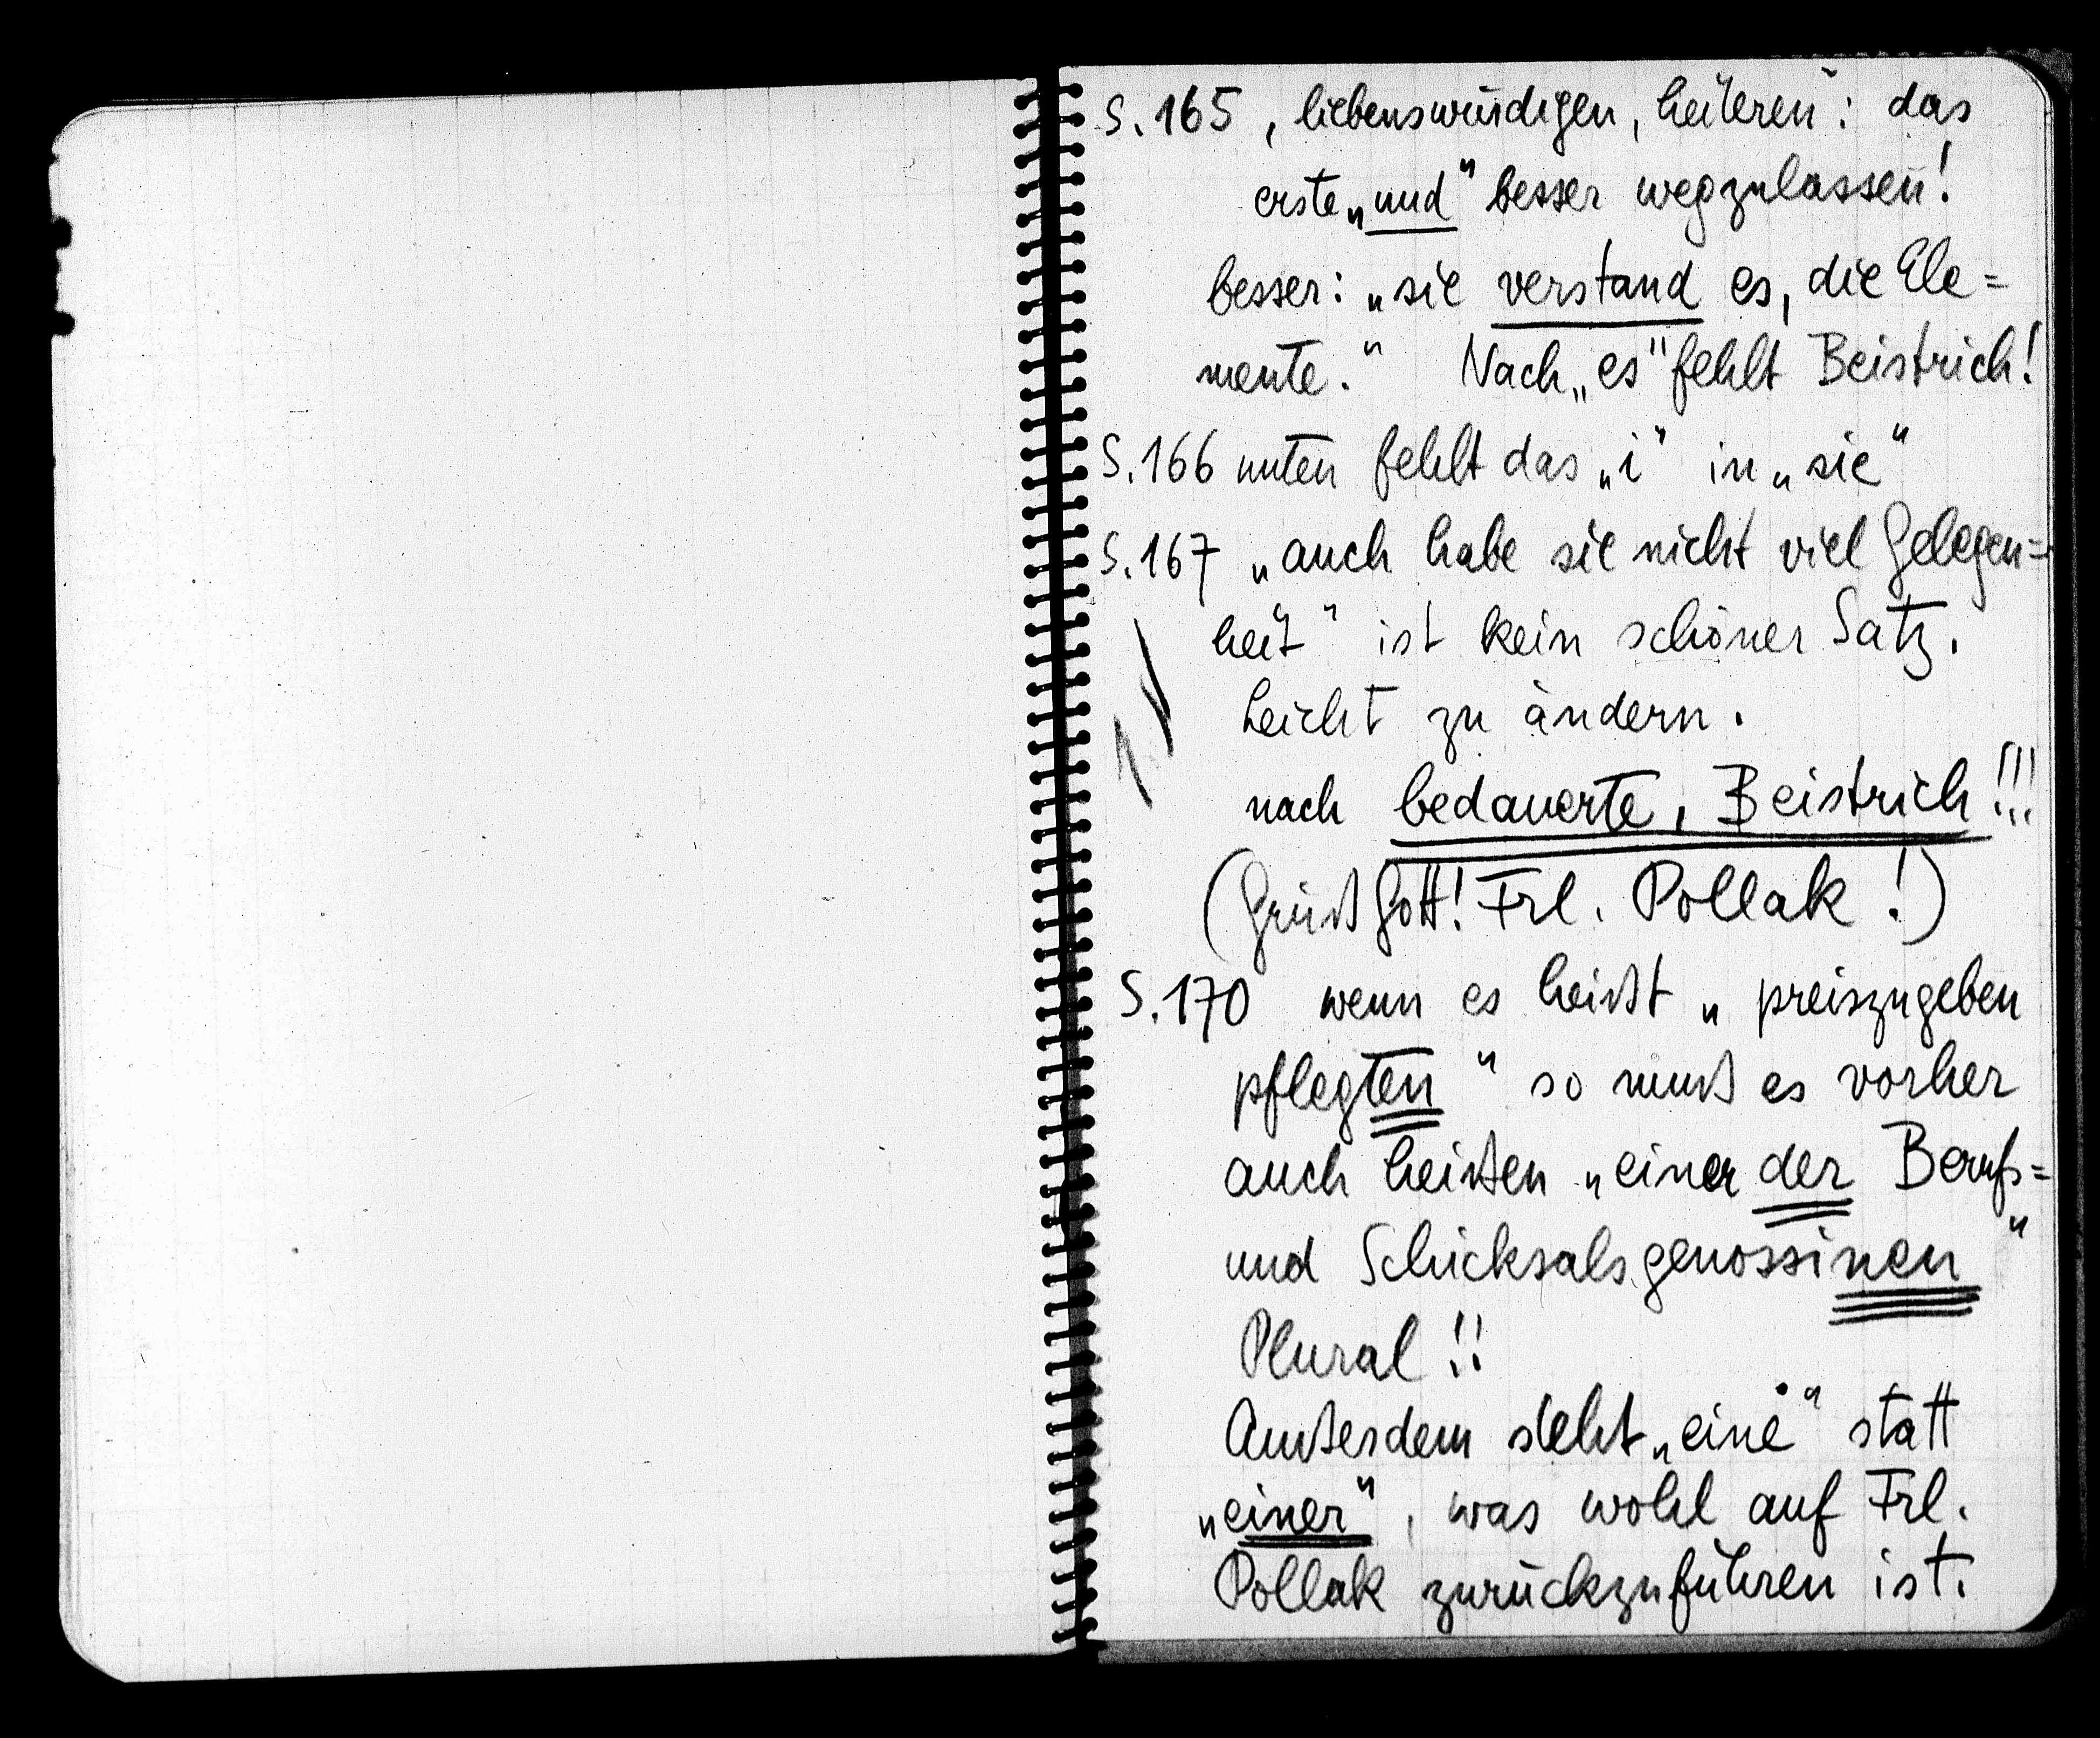 S. 165, liebenswürdigen, heiteren: das
erste „und" besser wegzulassen!
besser: „sie verstand es, die Ele=
mente." Nach „es" fehlt Beistrich!
S. 166 unten fehlt das „i" in „sie"
S. 167 „auch habe sie nicht viel Gelegen=
heit" ist kein schöner Satz.
Leicht zu ändern.
nach bedauerte, Beistrich!!!
(Grüß Gott! Frl. Pollak!)
S. 170 wenn es heißt „preiszugeben
pflegten" so muß es vorher
auch heißen „einer der Berufs=
und Schicksalsgenossinen"
Plural!!
Außerdem steht „eine" statt
„einer", was wohl auf Frl.
Pollak zurückzuführen ist.